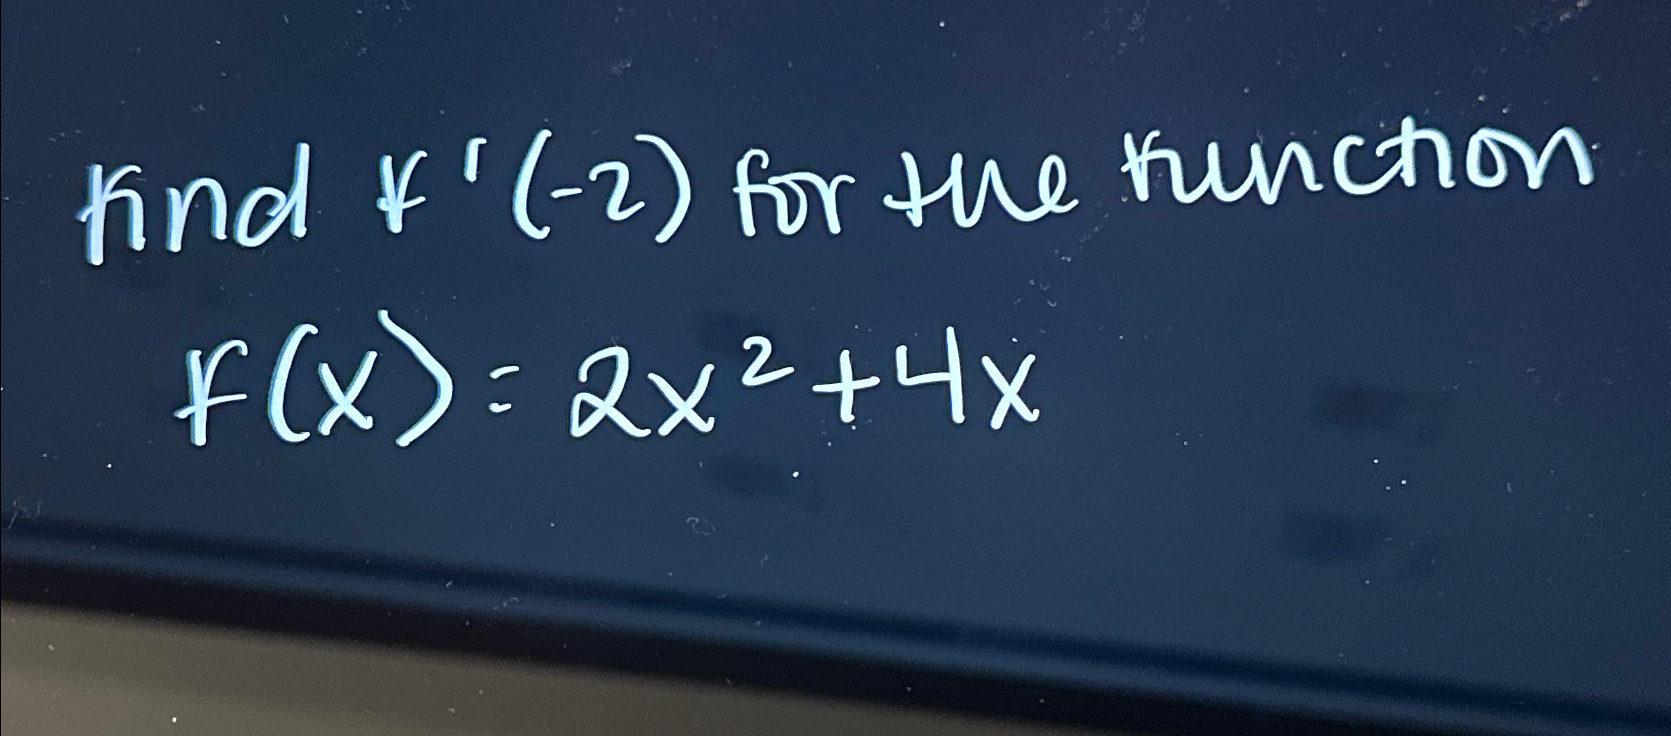 find f'(-2) for the function
f(x) = 2x² + 4x